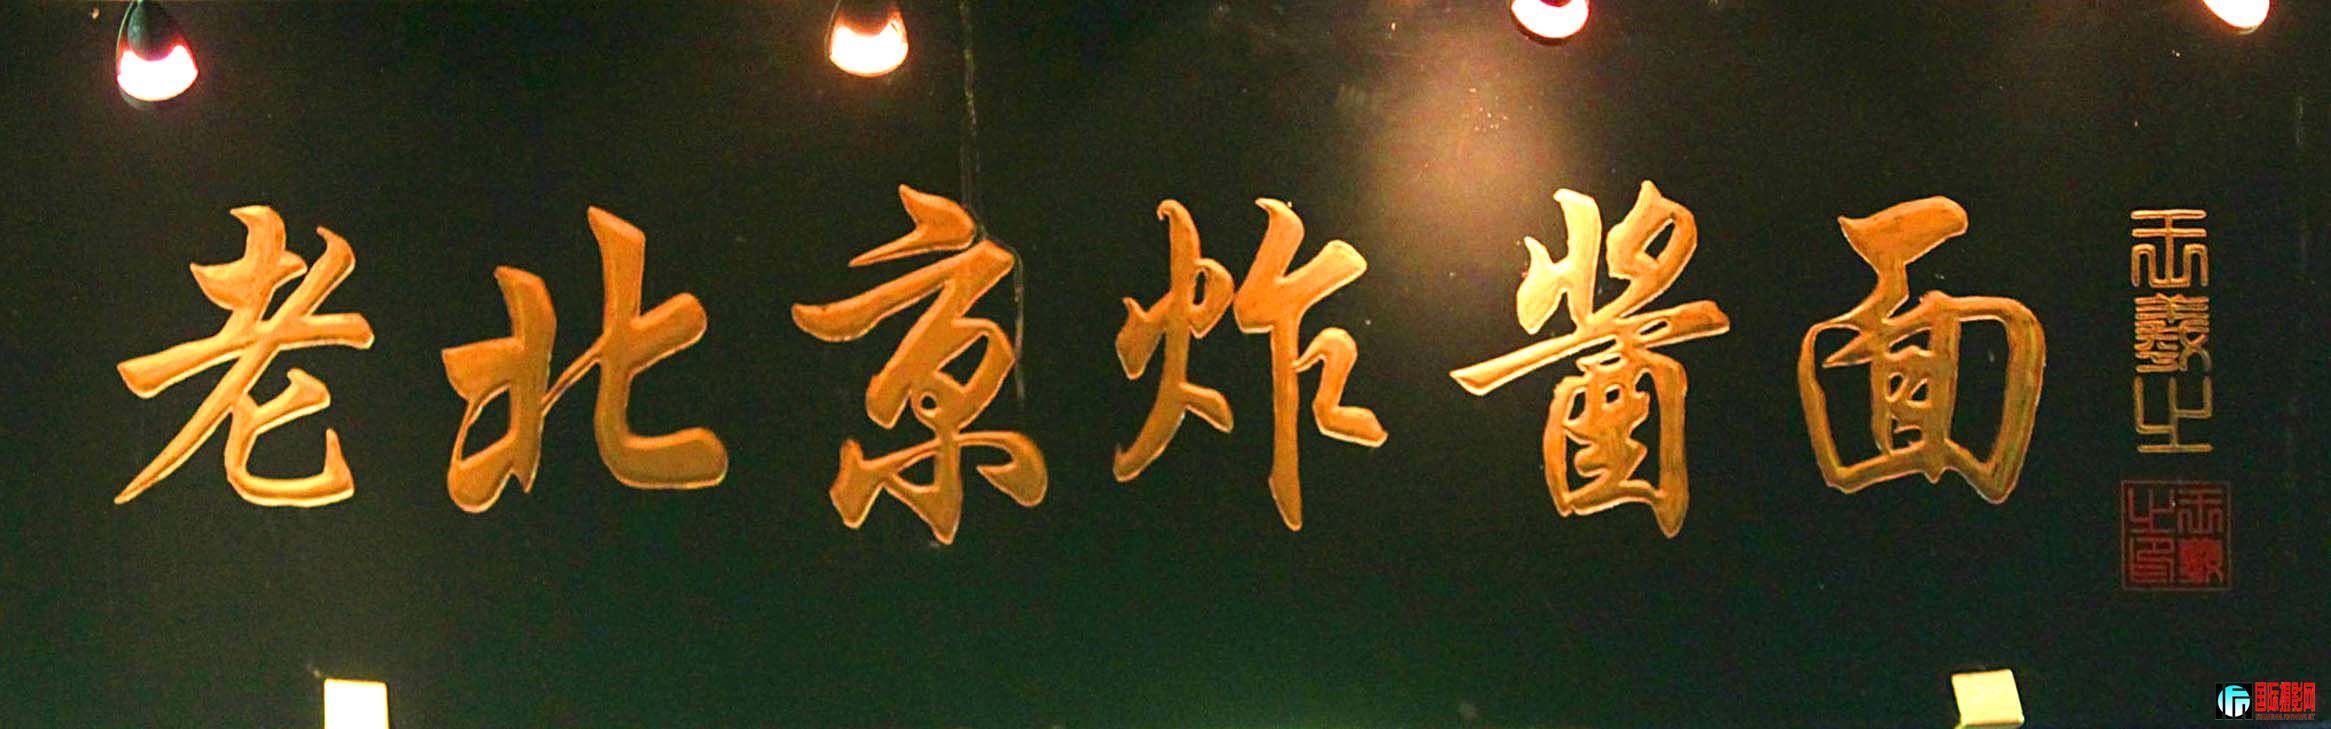 老北京炸醬面
国际摄影网